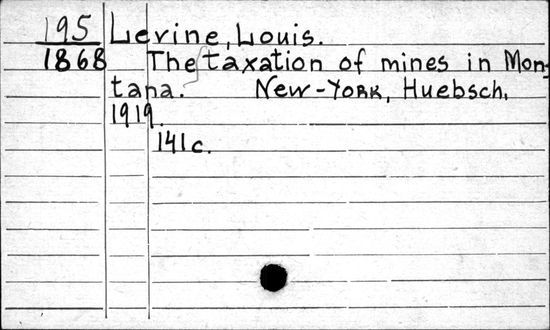 195 Levine, Louis.
1868 The taxation of mines in Mon-
tana. New-York, Huebsch,
1919.
141 c.